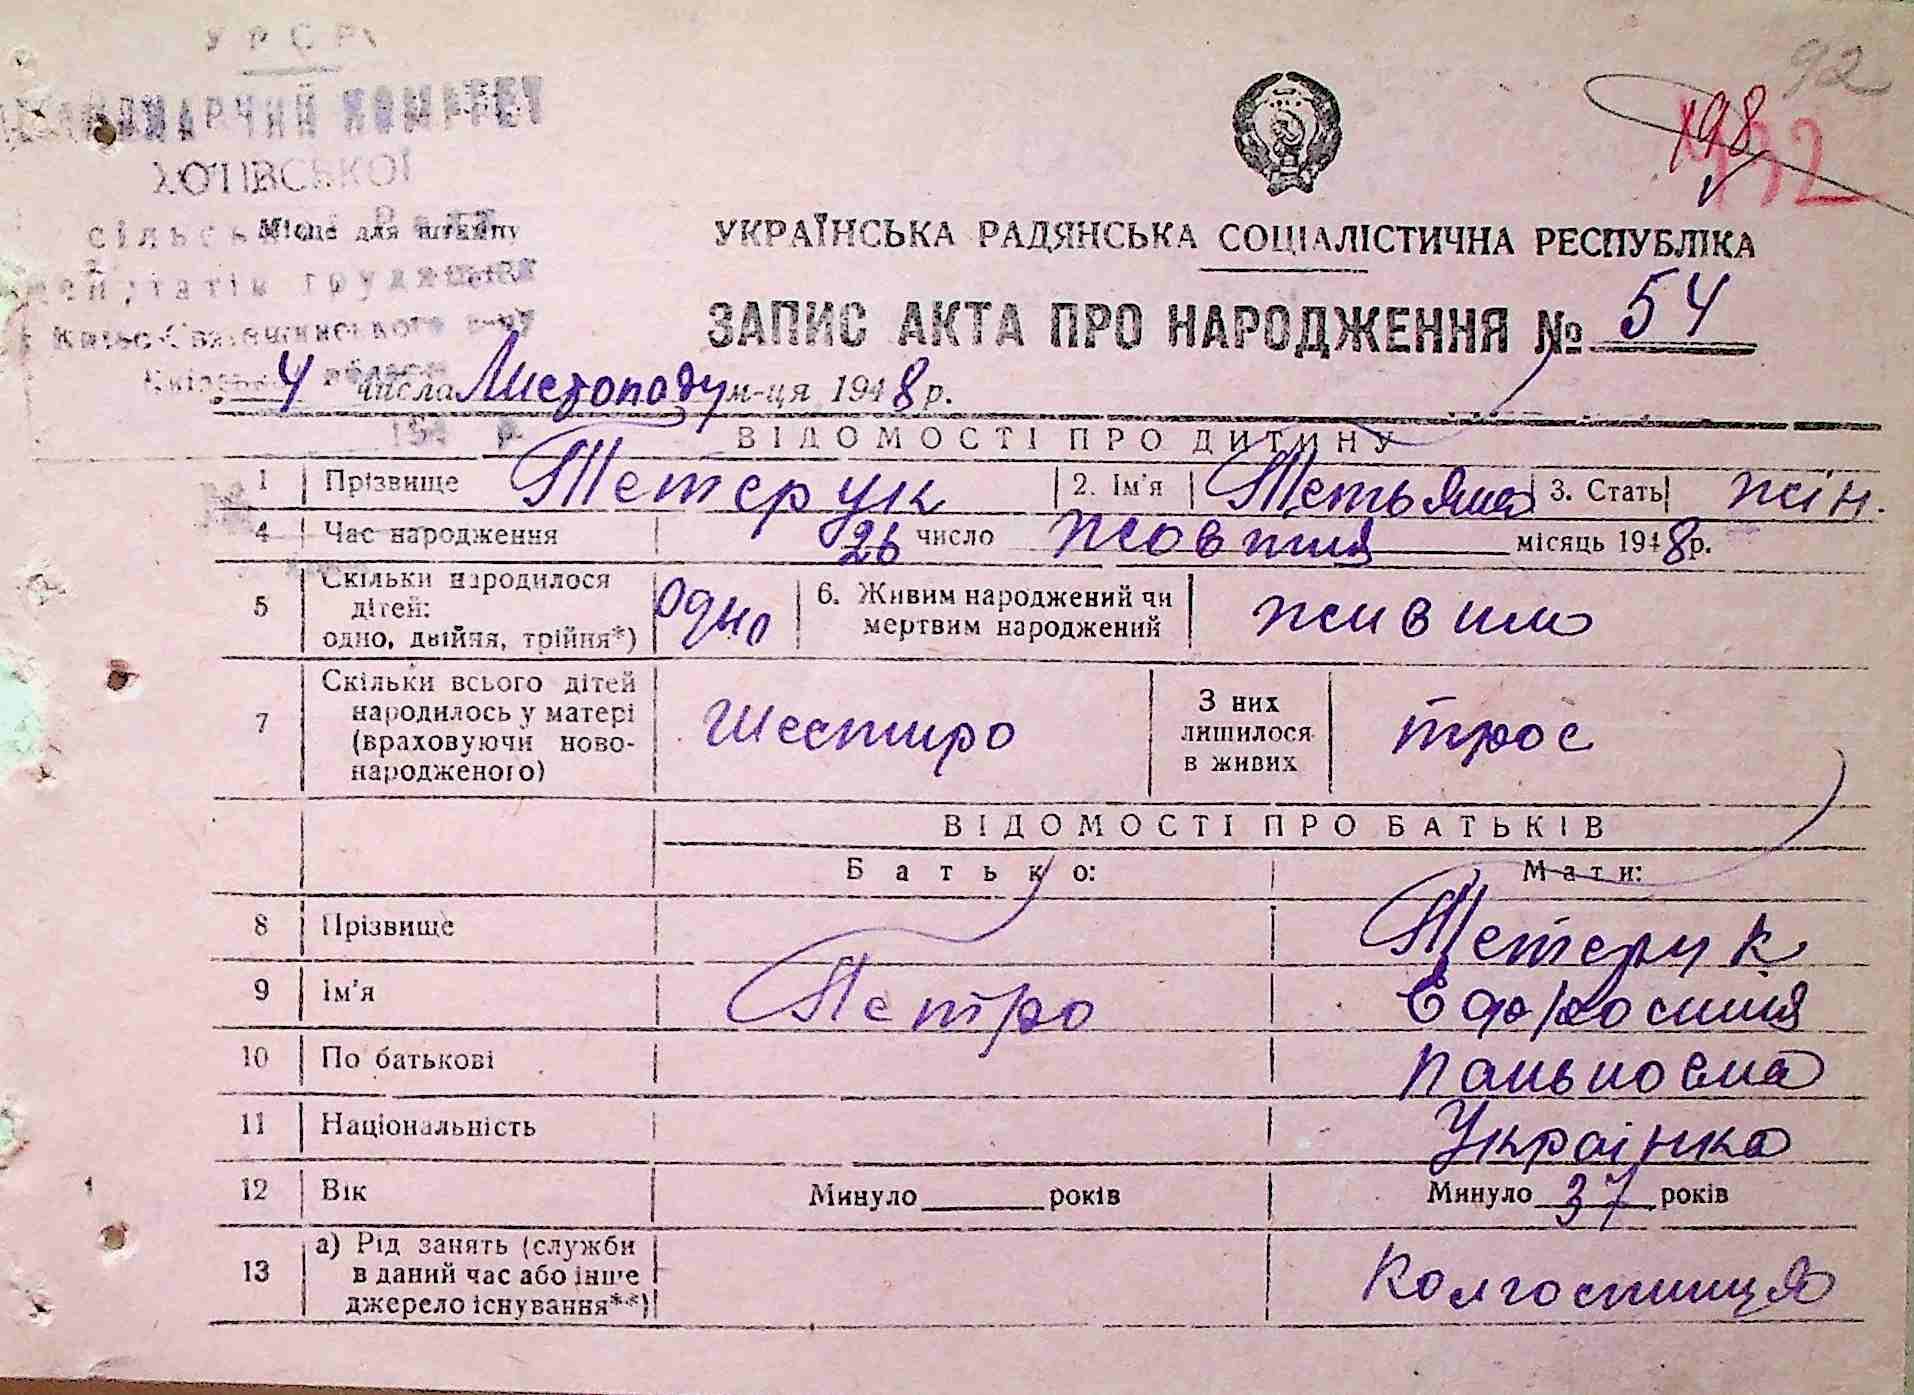 УРСР
ВИКОНАВЧИЙ КОМІТЕТ
ХОТІВСЬКОЇ
сільської Ради
Місце для штампу
депутатів трудящих
Києво-Святошинського р-ну
Київської області
194 р.
92
198
УКРАЇНСЬКА РАДЯНСЬКА СОЦІАЛІСТИЧНА РЕСПУБЛІКА
ЗАПИС АКТА ПРО НАРОДЖЕННЯ № 54
4 числа Листопаду м-ця 1948 р.
ВІДОМОСТІ ПРО ДИТИНУ
1 Прізвище Тетерук 2. Ім'я Тетьяна 3. Стать жін.
4 Час народження 26 число жовтня місяць 1948 р.
5 Скільки народилося дітей: одно, двійня, трійня*) одно 6. Живим народжений чи мертвим народжений живим
7 Скільки всього дітей народилось у матері (враховуючи новонародженого) шестиро З них лишилося в живих троє
ВІДОМОСТІ ПРО БАТЬКІВ
Батько: Мати:
8 Прізвище Тетерук
9 Ім'я Петро Єфросиния
10 По батькові
11 Національність Українка
12 Вік Минуло ____ років Минуло 37 років
13 а) Рід занять (служби в даний час або інше джерело існування**) Колгоспниця